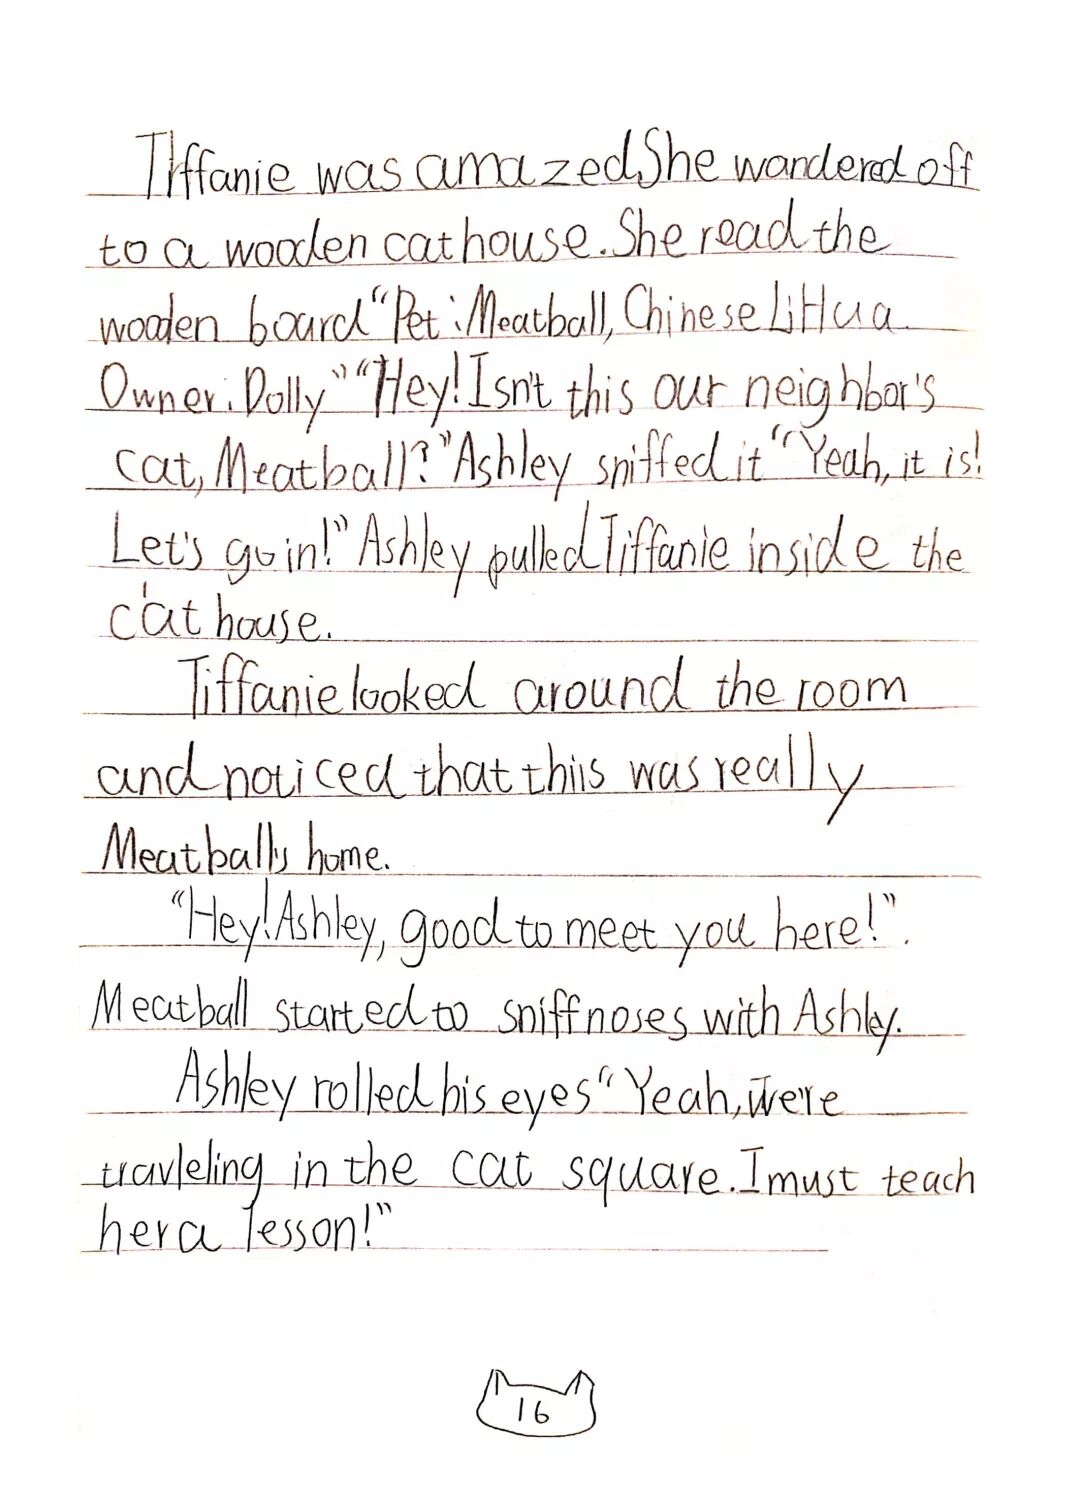 Tiffanie was amazed. She wandered off
to a wooden cat house. She read the
wooden board "Pet: Meatball, Chinese LiHua
Owner: Dolly" "Hey! Isn't this our neighbor's
cat, Meatball?" Ashley sniffed it "Yeah, it is!
Let's go in!" Ashley pulled Tiffanie inside the
cat house.
Tiffanie looked around the room
and noticed that this was really
Meatball's home.
"Hey! Ashley, good to meet you here!".
Meatball started to sniff noses with Ashley.
Ashley rolled his eyes "Yeah, we're
travleling in the cat square. I must teach
her a lesson!"
16